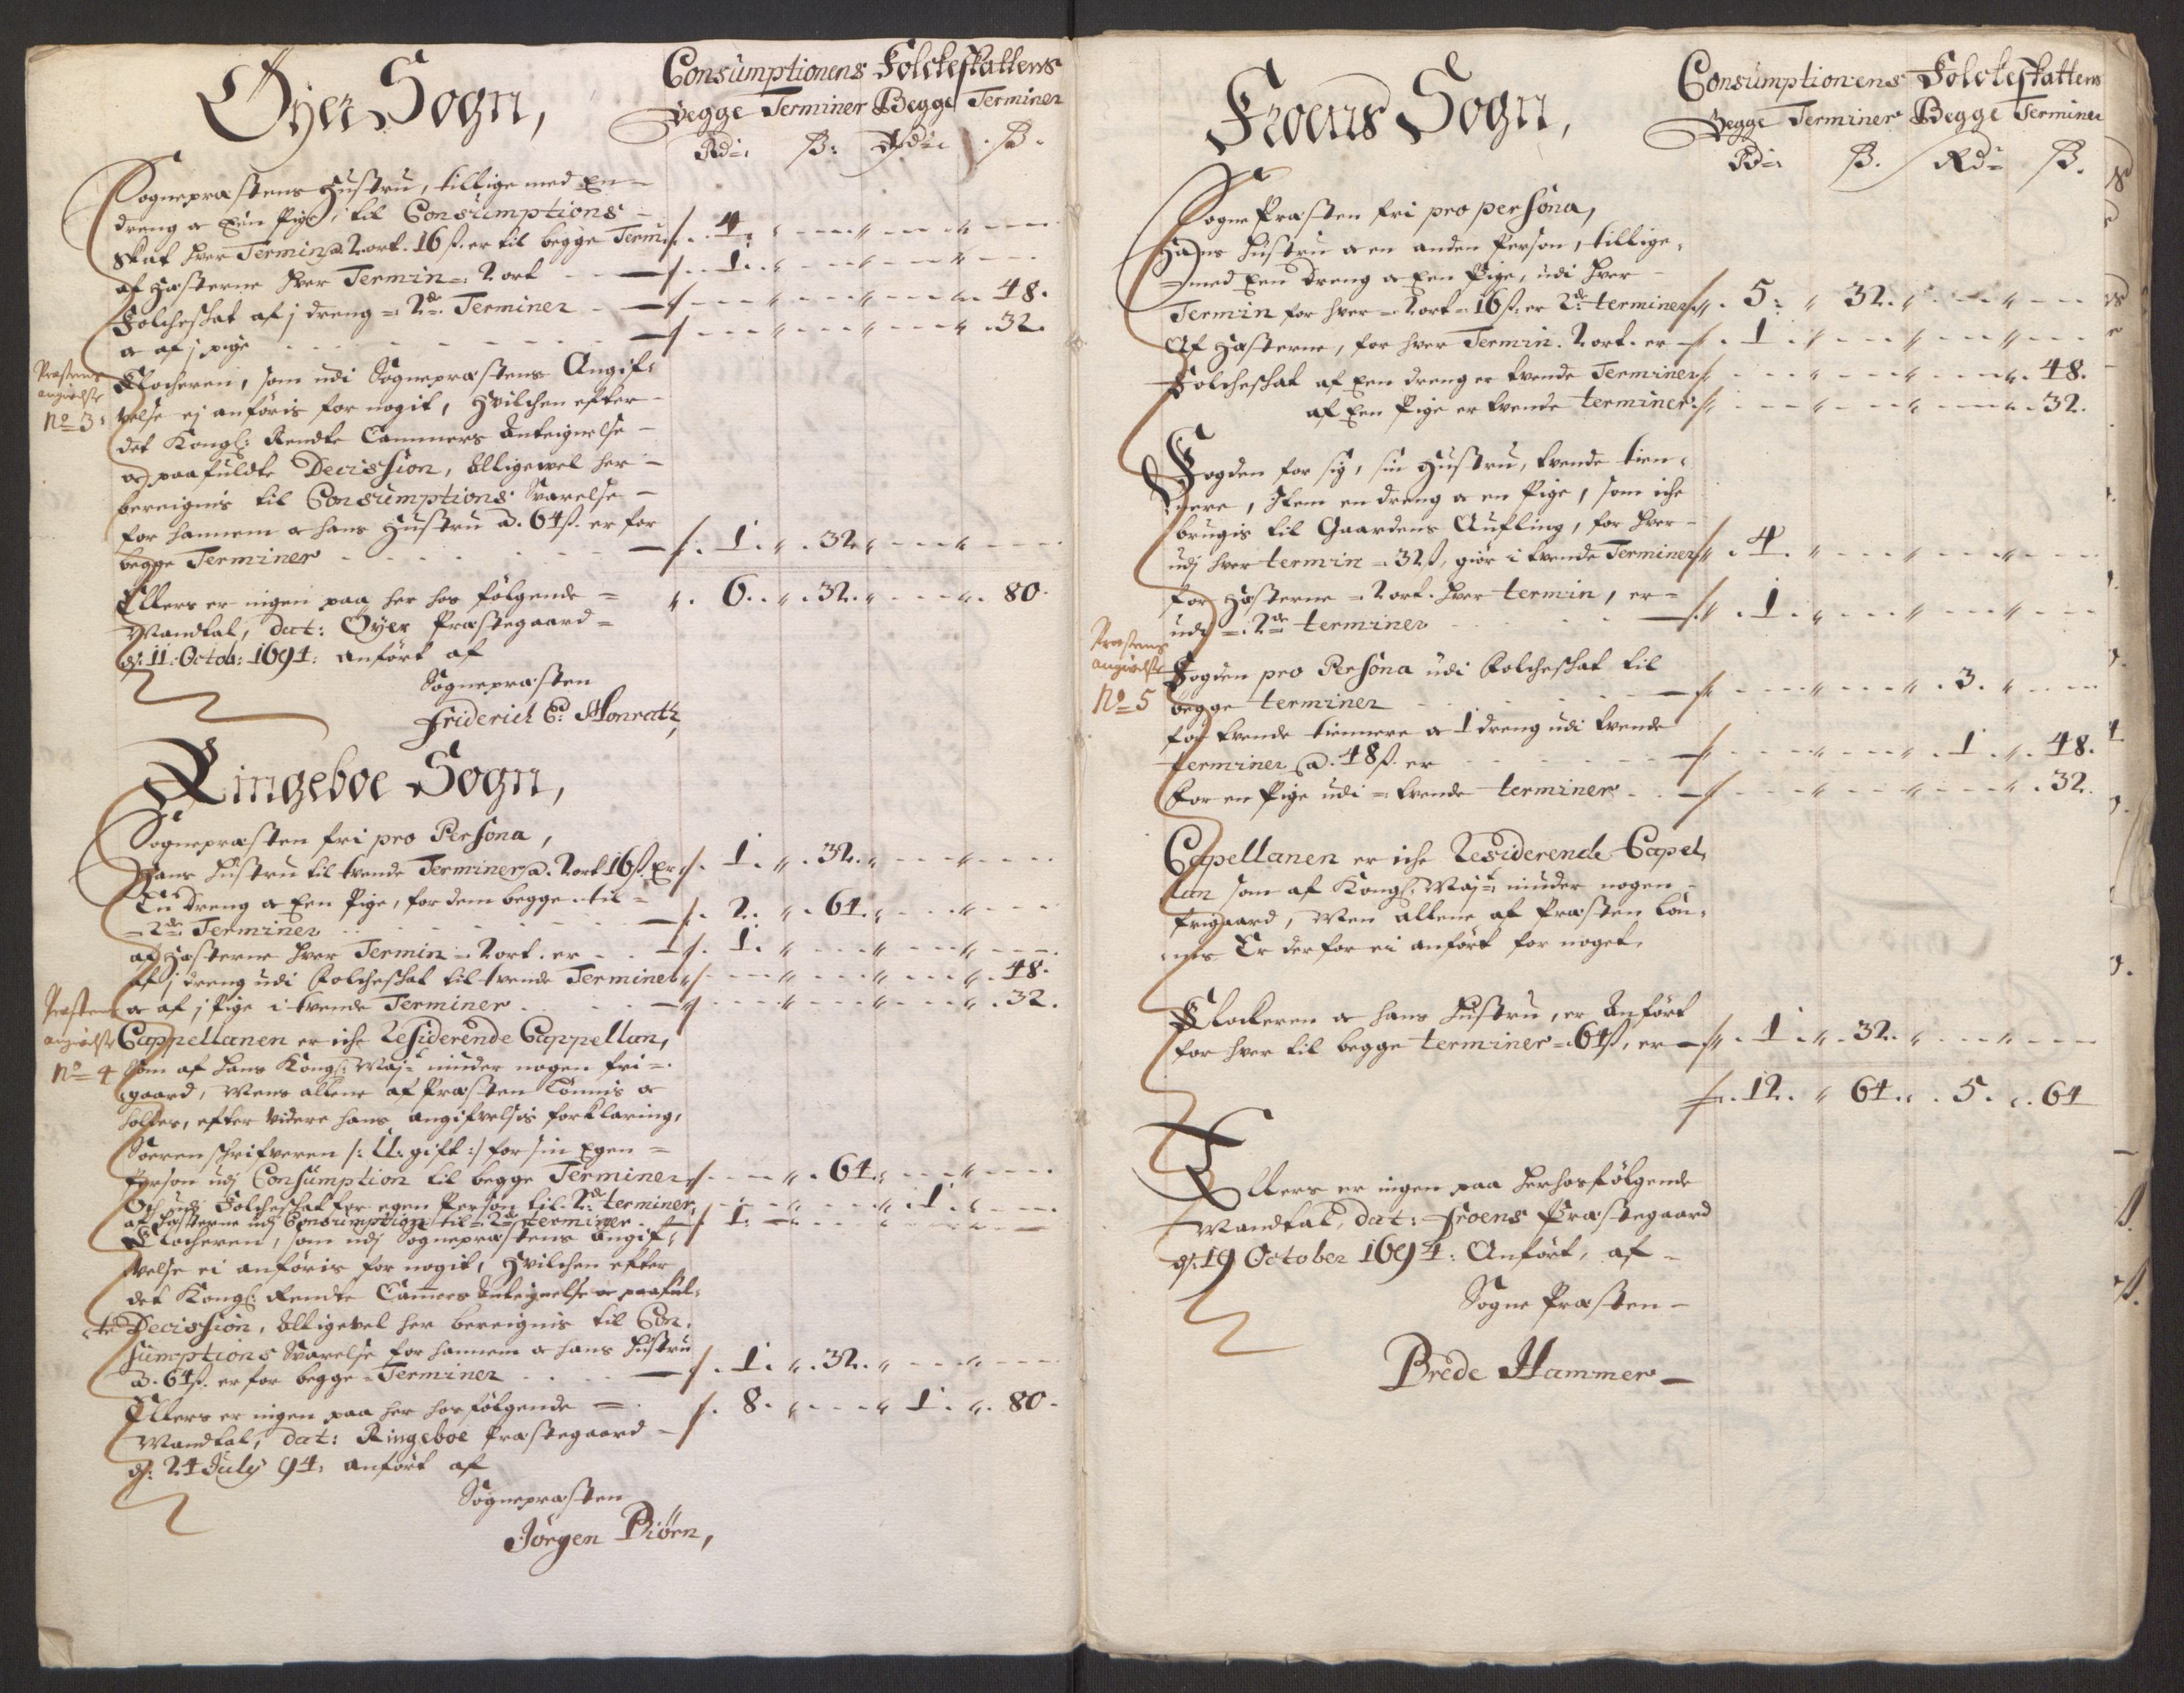 Öÿer Sogn,
Consumptionens Folckeskattens
Begge Terminer Begge Terminer
Rdr: ß: Rdr: ß.
Sognepræstens Hustru, tillige med En
dreng & Een Pige, til Consumptions
skat hver Termin a. 2 ort. 16 ß. er til begge Term: 4.
af Hæsterne hver Termin = 2 ort 1.
Folcheskat af j dreng = 2de Terminer 48.
& af j pige 32.
Præstens
angivelse
No 3:
Klocheren, som udi Sognepræstens Angif-
velse ej anföris for nogit, Hvilchen efter
det Kongl: Rendte Cammers Anteignelse
& paafuldte Decission, alligevel her
bereignis til Consumptions Svarelse
for hannem & hans Hustru a. 64 ß. er for
begge Terminer 1. 32.
Ellers er ingen paa her hos fölgende 6. 32. 80.
Mandtal, dat: Öyer Præstegaard
d: 11: Octob: 1694: anfört af
Sognepræsten
Friderich C: Monrath,
Ringeboe Sogn,
Sognepræsten fri pro Persona,
Hans Hustru til tvende Terminer a. 2 ort 16 ß. Er 1. 32.
En dreng & Een Pige, for dem begge til
2de Terminer 2. 64.
af Hæsterne hver Termin = 2 ort. er 1.
Af j dreng udi Folcheskat til tvende Terminer 48.
& af j Pige i tvende Terminer 32.
Præstens
angivelse
No 4
Cappellanen er iche Residerende Cappellan,
som af Hans Kongl: Maj: niuder nogen fri
gaard, Mens allene af Præsten Lönnis &
holdes, efter videre hans angifvelsis forklaring,
Sorenschrifveren /: U-gift :/ for sin Egen
Person udj Consumption til begge Terminer 64.
Og udj Folcheskat for egen Person til 2de terminer 1.
af Hæsterne udj Consumption til 2de terminer 1.
Klocheren, som udj Sognepræstens Angif-
velse ei anföris for nogit, Hvilchen efter
det Kongl: Rendte Camers Anteignelse & paaful-
te Decission, alligevel her bereignis til Con-
sumptions Svarelse for hannem & hans Hustru
a. 64 ß. er for begge Terminer 1. 32.
Ellers er ingen paa her hos fölgende 8. 1. 80.
Mandtal, dat: Ringeboe Præstegaard
d: 24 July 94, anfört af
Sognepræsten
Jörgen Biörn,
Froens Sogn,
Consumptionens Folckeskattens
Begge Terminer Begge Terminer
Rdr: ß. Rdr ß.
Sogne Præsten fri pro persona,
Hans Hustru & en anden Person, tillige
med Een dreng & Een Pige, udi hver
Termin for hver 2 ort 16 ß. er 2de terminer 5. 32.
Af Hæsterne, for hver Termin. 2 ort. er 1.
Folcheskat af Een dreng er tvende Terminer 48.
af Een Pige er tvende terminer 32.
Fogden for sig, sin Hustru, tvende tien-
nere, Item en dreng & en Pige, som iche
brugis til Gaardens Aufling, for hver
udj hver termin 32 ß, giör i tvende Terminer 4.
for Hæsterne 2 ort. hver termin, er
udj 2de terminer 1.
Præstens
angivelse
No 5
Fogden pro Persona udi Folcheskat til
begge terminer 3.
for tvende tiennere & 1 dreng udi tvende
terminer a. 48 ß. er 1. 48.
For en Pige udi tvende terminer 32.
Capellanen er iche Residerende Capel-
lan som af Kongl: Maj: niuder nogen
frigaard, Men allene af Præsten lön-
nes Er derfor ei anfört for noget,
Klockeren & hans Hustru, er Anfört
for hver til begge terminer 64 ß, er 1. 32.
12. 64. 5. 64
Ellers er ingen paa herhosfölgende
Mandtal, dat: Froens Præstegaard
d: 19 October 1694: Anfört, af
Sogne Præsten
Brede Hammer